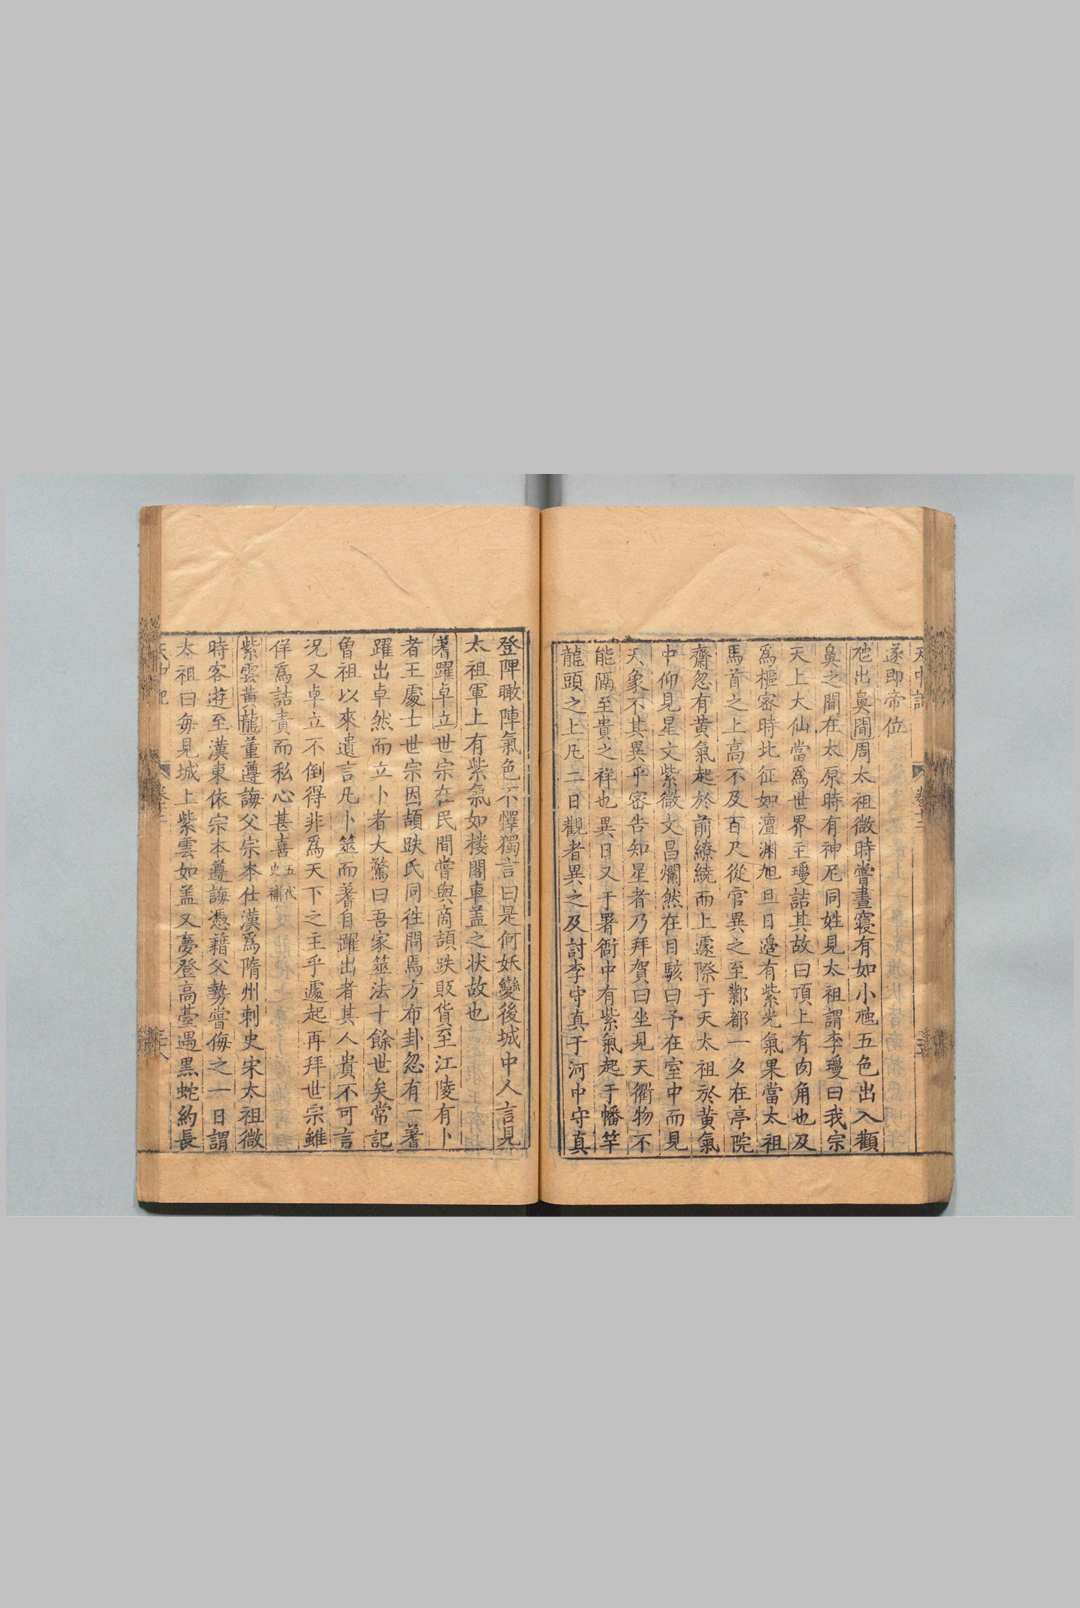 天中記
卷十二
遂即帝位
虵出鼻間周太祖微時嘗晝寢有如小虵五色出入顴
鼻之間在太原時有神尼同姓見太祖謂李璦曰我宗
天上大仙當爲世界主璦詰其故曰頂上有肉角也及
爲樞密時北征如澶淵旭旦日邉有紫光氣果當太祖
馬首之上高不及百尺從官異之至鄴都一夕在亭院
齋忽有黄氣起於前繚繞而上遽際于天太祖於黄氣
中仰見星文紫微文昌爛然在目駭曰予在室中而見
天象不其異乎密告知星者乃拜賀曰坐見天衢物不
能隔至貴之祥也異日又于署衙中有紫氣起于幡竿
龍頭之上凡二日觀者異之及討李守真于河中守真
登陴瞰陣氣色不懌獨言曰是何妖變後城中人言見
太祖軍上有紫氣如楼閣車盖之状故也
蓍躍卓立世宗在民間嘗與萳頡跌販貨至江陵有卜
者王處士世宗因頡跌氏同徃問焉方布卦忽有一蓍
躍出卓然而立卜者大驚曰吾家筮法十餘世矣常記
魯祖以來遺言凡卜筮而蓍自躍出者其人貴不可言
況又卓立不倒得非爲天下之主乎遽起再拜世宗雖
佯爲詰責而私心甚喜五代史補
紫雲黄龍董遵誨父宗本仕漢爲隋州刺史宋太祖微
時客遊至漢東依宗本遵誨憑藉父勢嘗侮之一日謂
太祖曰每見城上紫雲如盖又夢登高臺遇黑蛇約長